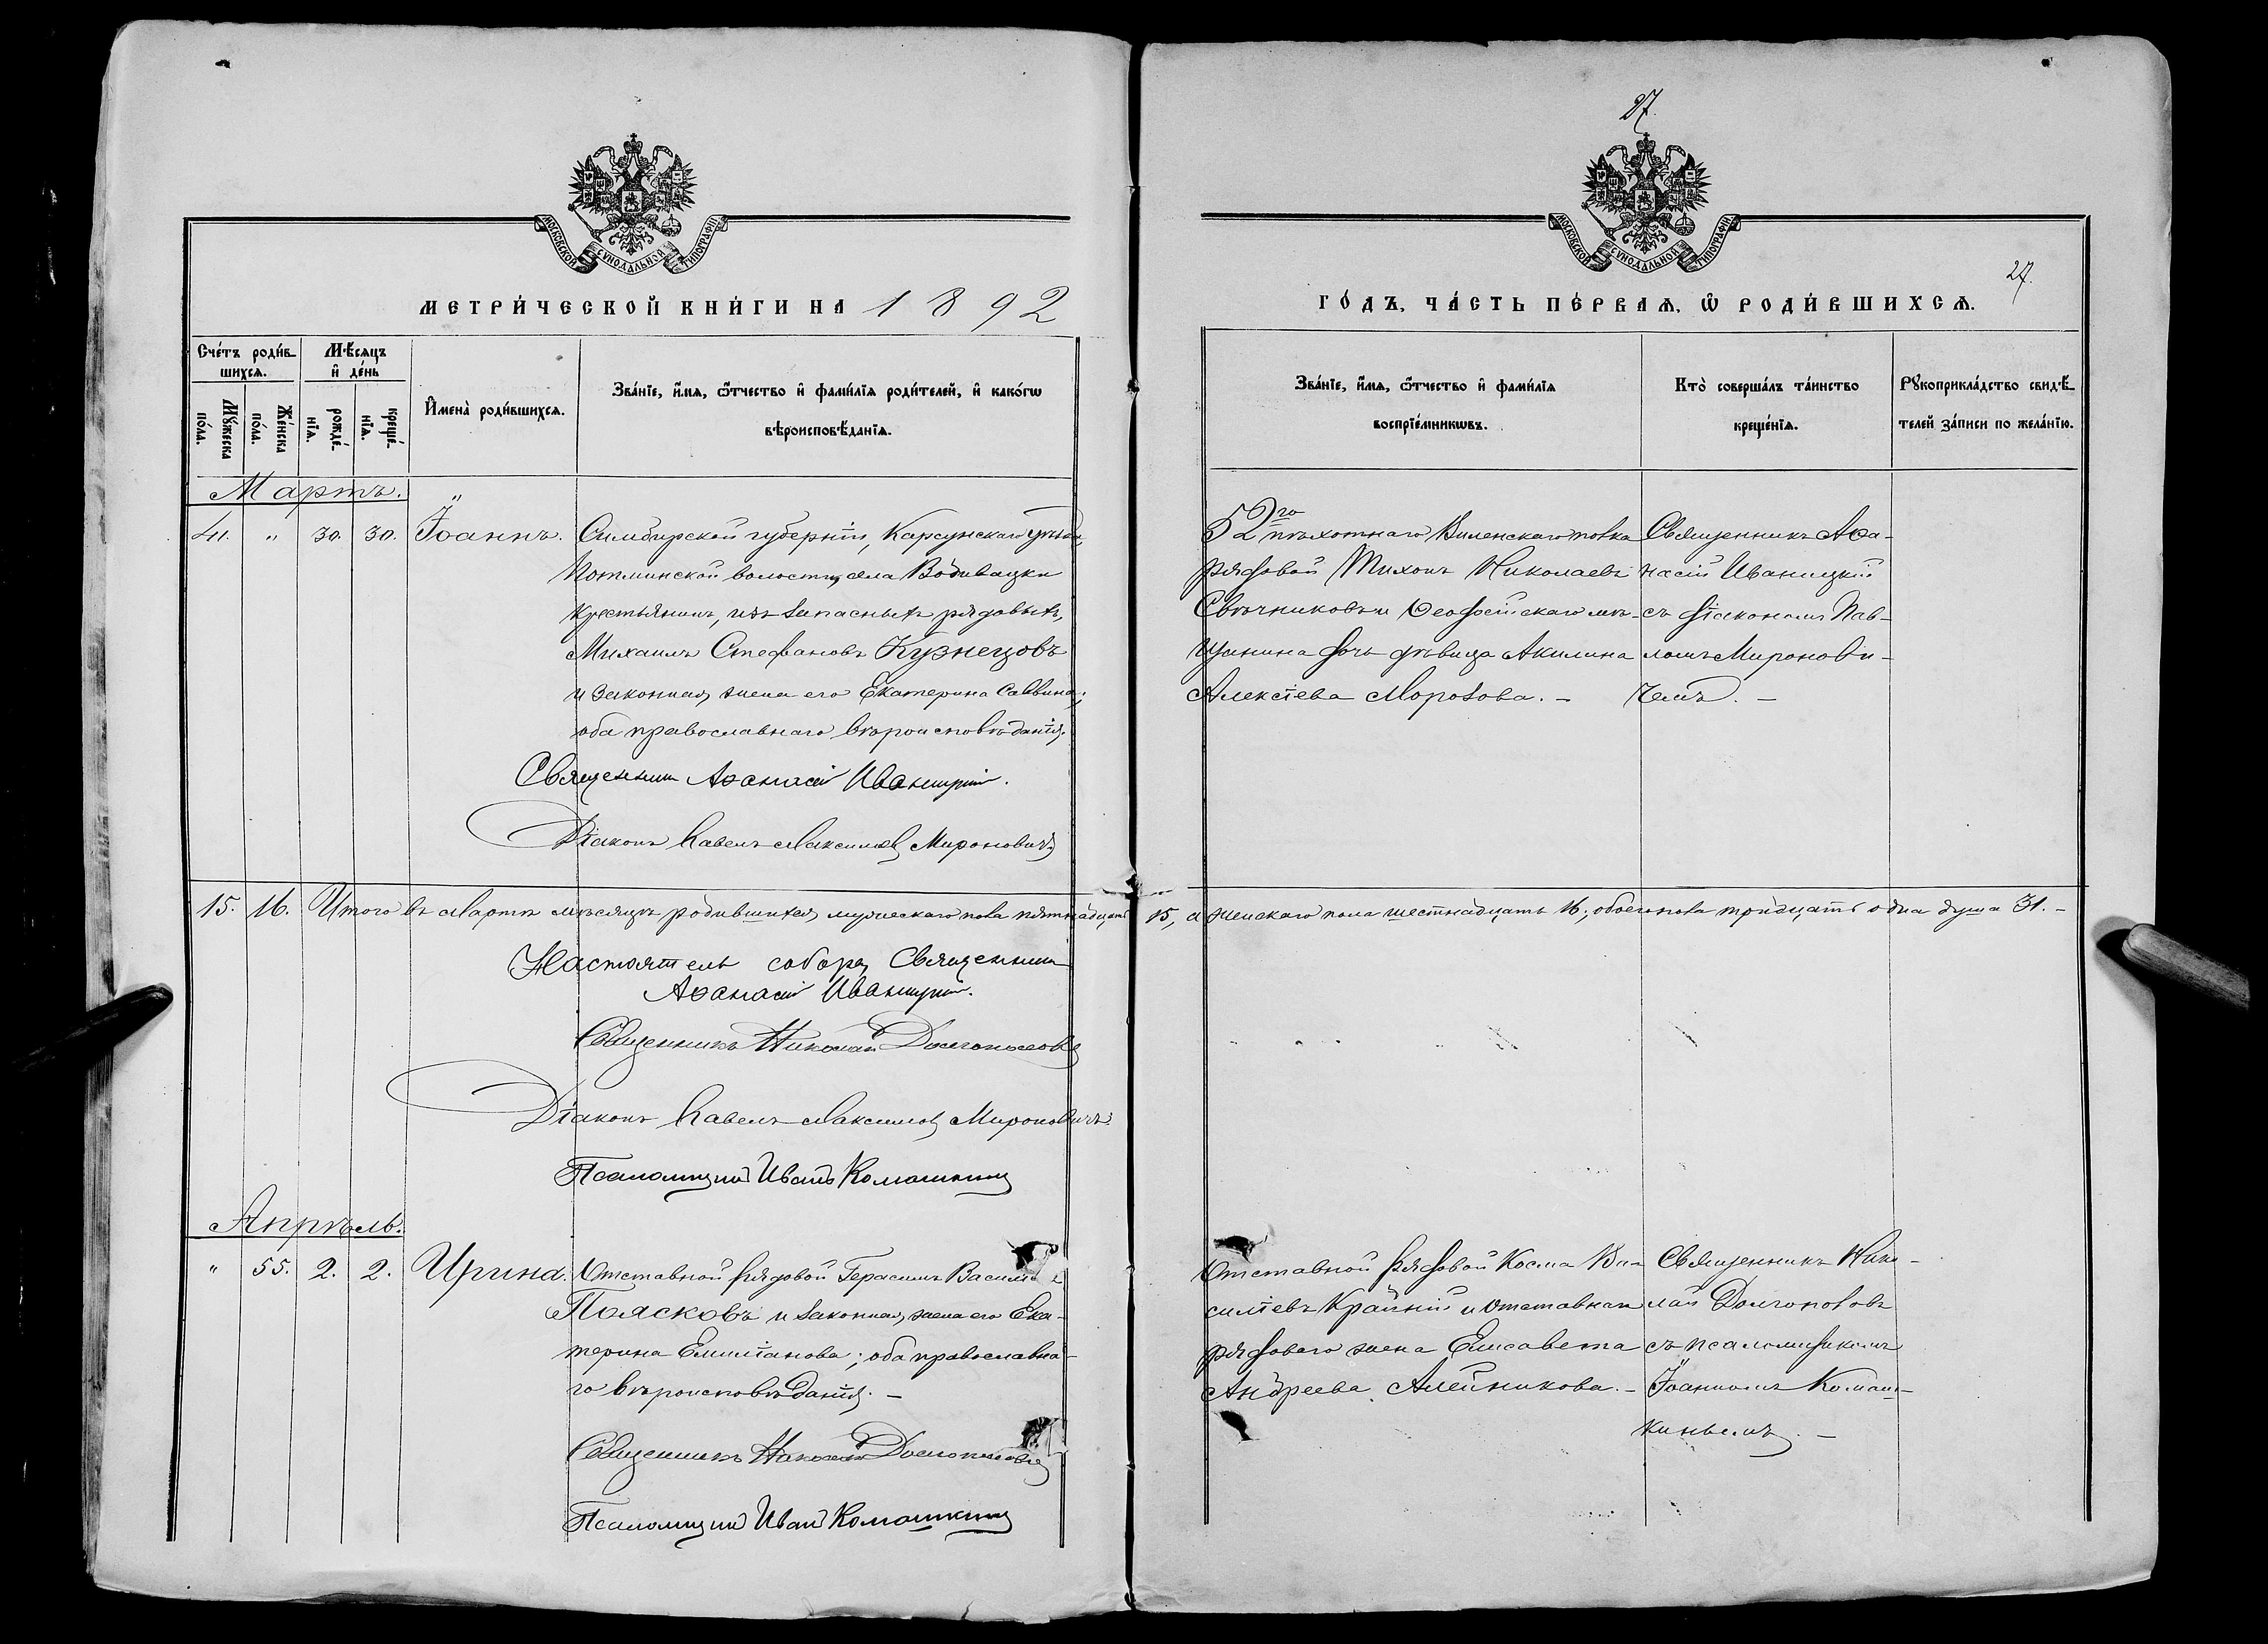 27.
МОСКОВСКОЙ СѴНОДАЛЬНОЙ ТИПОГРАФІИ
МОСКОВСКОЙ СѴНОДАЛЬНОЙ ТИПОГРАФІИ
27.
МЕТРИ́ЧЕСКОЙ КНИ́ГИ НА 1892
ГО́ДЪ, ЧА́СТЬ ПЕ́РВАЯ, Ѽ РОДИ́ВШИХСЯ.
Сче́тъ роди́в-
шихся.
Мꙋ́жеска по́ла.
Же́нска по́ла.
Мѣ́сяцъ
и҆ де́нь
рожде́-
нїя.
креще́-
нїя.
И҆мена̀ роди́вшихся.
Зва́нїе, и҆́мя, ѻ҆́тчество и҆ фами́лїя роди́телей, и҆ како́гѡ
вѣроисповѣ́данїя.
Зва́нїе, и҆́мя, ѻ҆́тчество и҆ фами́лїя
воспрїе́мникѡвъ.
Кто̀ соверша́лъ та́инство
креще́нїя.
Рꙋкоприкла́дство свидѣ́-
телей за́писи по жела́нїю.
Мартъ.
41. " 30. 30. Іоаннъ.
Симбирской губерніи, Карсунскаго уѣзда,
Потминской волости, села Водивацки
крестьянинъ, изъ запасныхъ рядовыхъ,
Михаилъ Стефановъ Кузнецовъ
и законная жена его Екатерина Саввина;
оба православнаго вѣроисповѣданія.
Священникъ Аѳанасій Иваницкій.
Діаконъ Павелъ Максимовъ Мироновичъ
52го пѣхотнаго Виленскаго полка
рядовой Тихонъ Николаевъ
Свѣчниковъ и Ѳеодосійскаго мѣ-
щанина дочь дѣвица Акилина
Алексіева Морозова. –
Священникъ Аѳа-
насій Иваницкій
съ діакономъ Пав-
ломъ Миронови-
чемъ. –
15. 16. Итого въ Мартѣ мѣсяцѣ родившихся мужескаго пола пятнадцать 15, а женскаго пола шестнадцать 16; обоего пола тридцать одна душа 31. –
Настоятель собора Священникъ
Аѳанасій Иваницкій.
Священникъ Николай Долгополовъ
Діаконъ Павелъ Максимовъ Мироновичъ
Псаломщикъ Иванъ Комашкинъ
Апрѣль.
" 55. 2. 2. Ирина.
Отставной рядовой Герасимъ
Поясковъ и законная жена его Ека-
терина Емиліанова; оба православна-
го вѣроисповѣданія. –
Священникъ Николай Долгополовъ
Псаломщикъ Иванъ Комашкинъ
Отставной рядовой Косма Ва-
силіевъ Крайній и отставнаго
рядоваго жена Елисавета
Андреева Алейникова. –
Священникъ Нико-
лай Долгополовъ
съ псаломщикомъ
Іоанномъ Комаш-
кинымъ. –